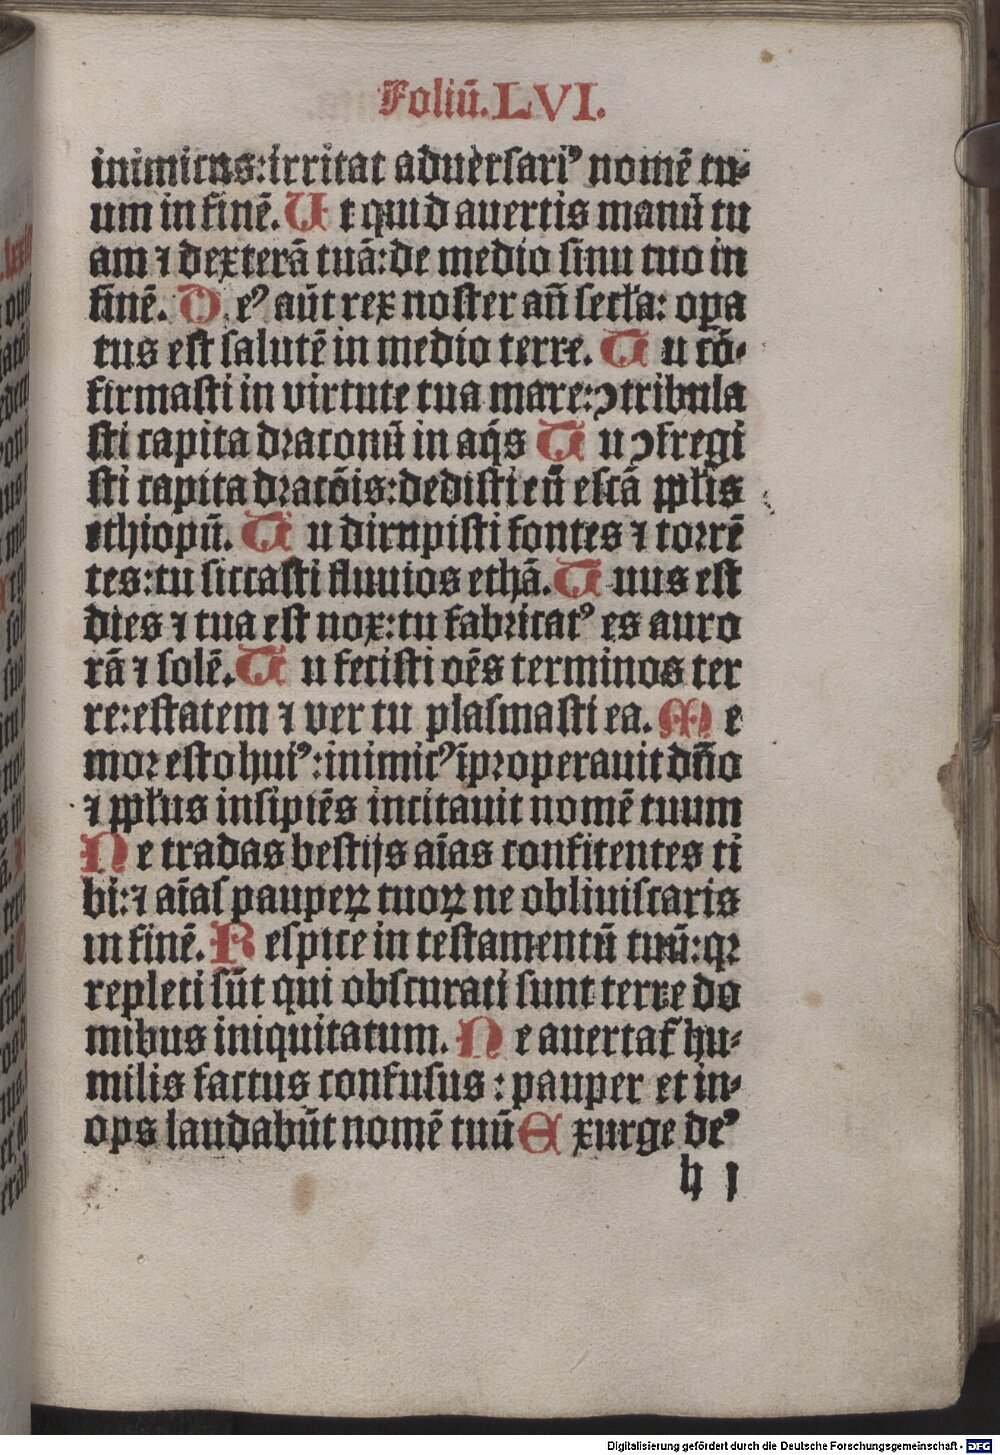 Foliū. LVI.
inimicus: irritat aduersariꝰ nomē tu⸗
um in finē. Ut quid auertis manū tu
am ⁊ dexterā tuā: de medio sinu tuo in
finē. Deꝰ aūt rex noster an̄ secła: opa
tus est salutē in medio terre. Tu cō⸗
firmasti in virtute tua mare: ꝯtribula
sti capita draconū in aq̇s Tu ꝯfregi
sti capita dracōis: dedisti eū escā ppłis
ethiopū. Tu dirupisti fontes ⁊ torrē
tes: tu siccasti fluuios ethā. Tuus est
dies ⁊ tua est nox: tu fabricatꝰ es auro
rā ⁊ solē. Tu fecisti oēs terminos ter
re: estatem ⁊ ver tu plasmasti ea. Me
mor esto huiꝰ: inimicꝰ īproperauit dn̄o
⁊ ppłus insipiēs incitauit nomē tuum
Ne tradas bestijs aīas confitentes ti
bi: ⁊ aīas pauperꝝ tuoꝝ ne obliuiscaris
in finē. Respice in testamentū tuū: qꝛ
repleti sūt qui obscurati sunt terre do
mibus iniquitatum. Ne auertat̄ hu⸗
milis factus confusus: pauper et in⸗
ops laudabūt nomē tuū Exurge deꝰ
h i
Digitalisierung gefördert durch die Deutsche Forschungsgemeinschaft - DFG